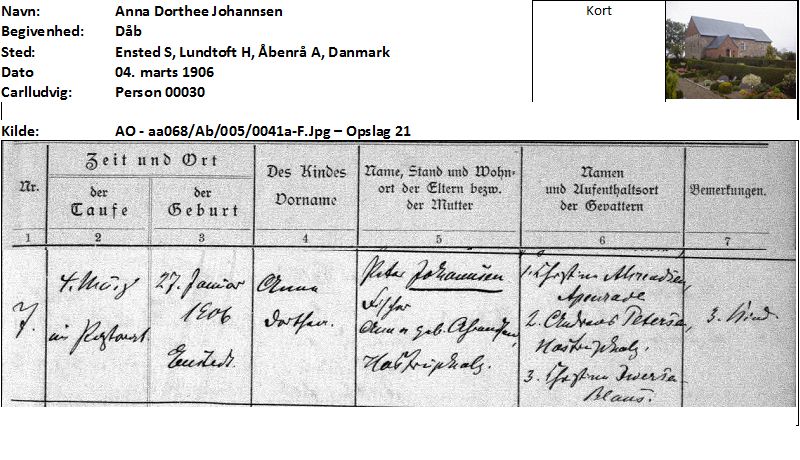 Navn: Anna Dorthee Johannsen
Kort
Begivenhed: Dåb
Sted: Ensted S, Lundtoft H, Åbenrå A, Danmark
Dato 04. marts 1906
Carlludvig: Person 00030
Kilde: AO - aa068/Ab/005/0041a-F.Jpg – Opslag 21
Nr.
Zeit und Ort
der
Taufe
der
Geburt
Des Kindes
Vorname
Name, Stand und Wohn-
ort der Eltern bezw.
der Mutter
Namen
und Aufenthaltsort
der Gevattern
Bemerkungen.
1 2 3 4 5 6 7
7.
4. März
im Pastorat
27. Januar
1906
Enstedt.
Anna
Dorthea.
Peter Johannsen
Anna geb.
1.
Apenrade
2. Andreas Petersen,
3.
3. Kind.